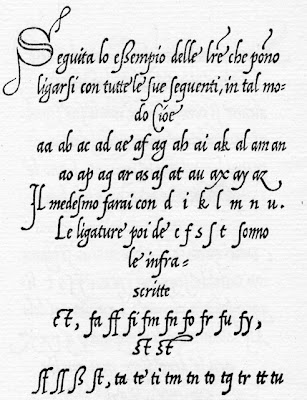 Seguita lo eſſempio delle lr̃e che põno
ligarſi con tutte le ſue ſeguenti, in tal mo-
do Cioè
aa ab ac ad ae af ag ah ai ak al am an
ao ap aq ar as aſ at au ax ay az
Il medeſmo farai con d i k l m n u.
Le ligature poi de c f s ſ t ſonno
le infra-
ſcritte
ct, fa ff fi fm fn fo fr fu fy,
st ſt
ſſ ſſ ß ſt, ta te ti tm tn to tq tr tt tu